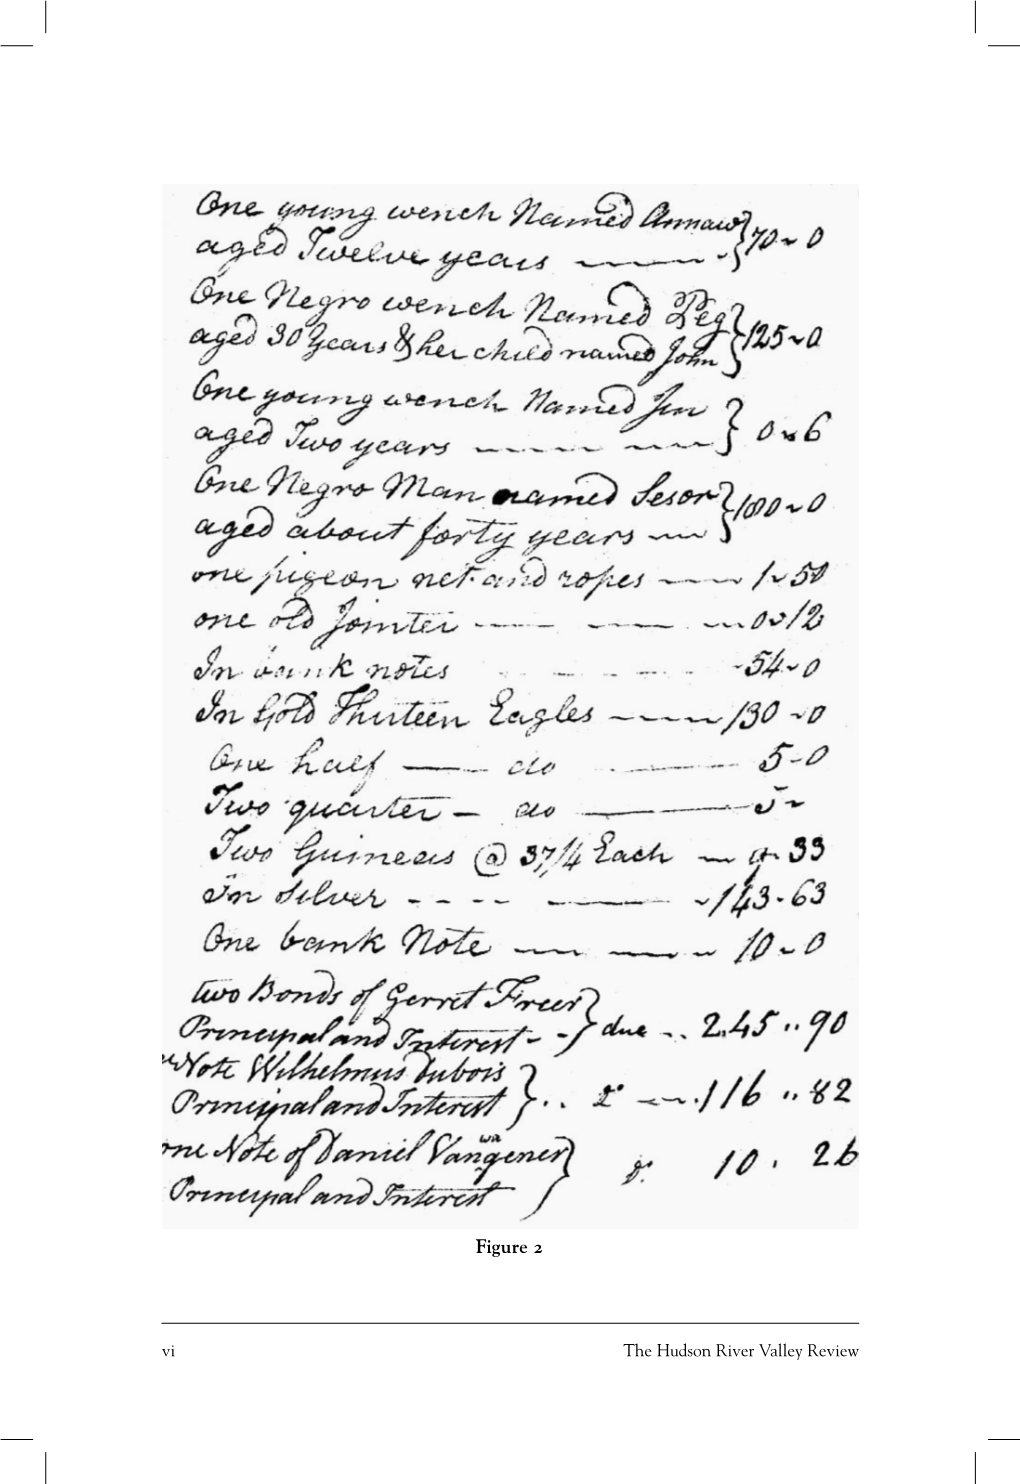 One young wench Named Annaw } 70 ~ 0
aged Twelve years
One Negro wench Named Peg } 125 ~ 0
aged 30 Years & her child named John
One young wench Named Jin } 0 ~ 6
aged Two years
One Negro Man named Sesor } 100 ~ 0
aged about forty years
one pigeon net and ropes 1 ~ 50
one old Jointer 0 ~ 12
In bank notes 54 ~ 0
In Gold Thirteen Eagles 130 ~ 0
One half do 5 - 0
Two quarter do 5 ~
Two Guineas @ 37/4 Each 33
In Silver 143 - 63
One bank Note 10 ~ 0
two Bonds of Gerret Freer } due 245 " 90
Principal and Interest
Note Wilhelmus Dubois } 116 " 82
Principal and Interest
one Note of Daniel Vanwagener } 10 . 26
Principal and Interest
Figure 2
vi The Hudson River Valley Review